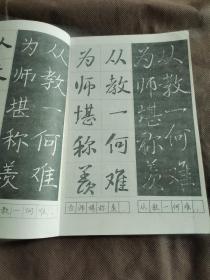 从教一何难
为师堪称羡
从教一何难
为师堪称羡
从教一何难
为师堪称羡
教一何难，
为师堪称羡
从教一何难，